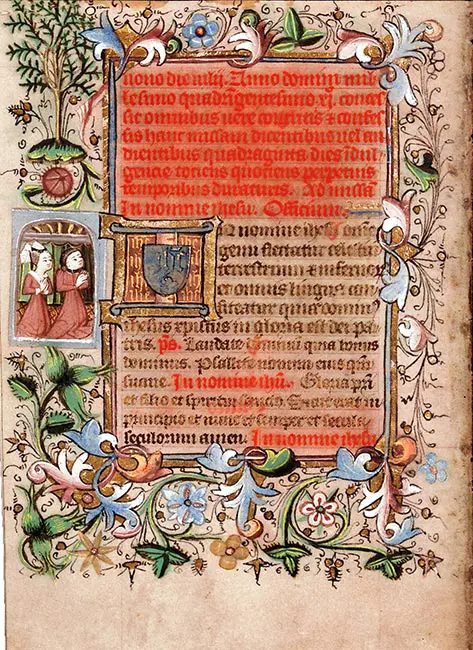 nono die iulij. Anno domini mil
lesimo quadringentesimo xj. conces
sit omnibus vere contritis & confes
sis hanc missam dicentibus vel au
dientibus quadraginta dies indul
gencie tociens quociens perpetuis
temporibus duraturis. Ad missã
In nomine ihesu. Officium.
N nomine ihesu omne
genu flectatur celestiu
terrestrium & infernor
et omnis lingua con
fiteatur quia dominus
ihesus xpistus in gloria est dei pa
tris. ps. Laudate dominũ quia bonus
dominus. Psallite nomini eius qm̃
suaue. In nomine ihũ. Gloria pr̃i
et filio et spiritui sancto. Sicut erat in
principio et nunc et semper et secula
seculorum amen. In nomine ihesu